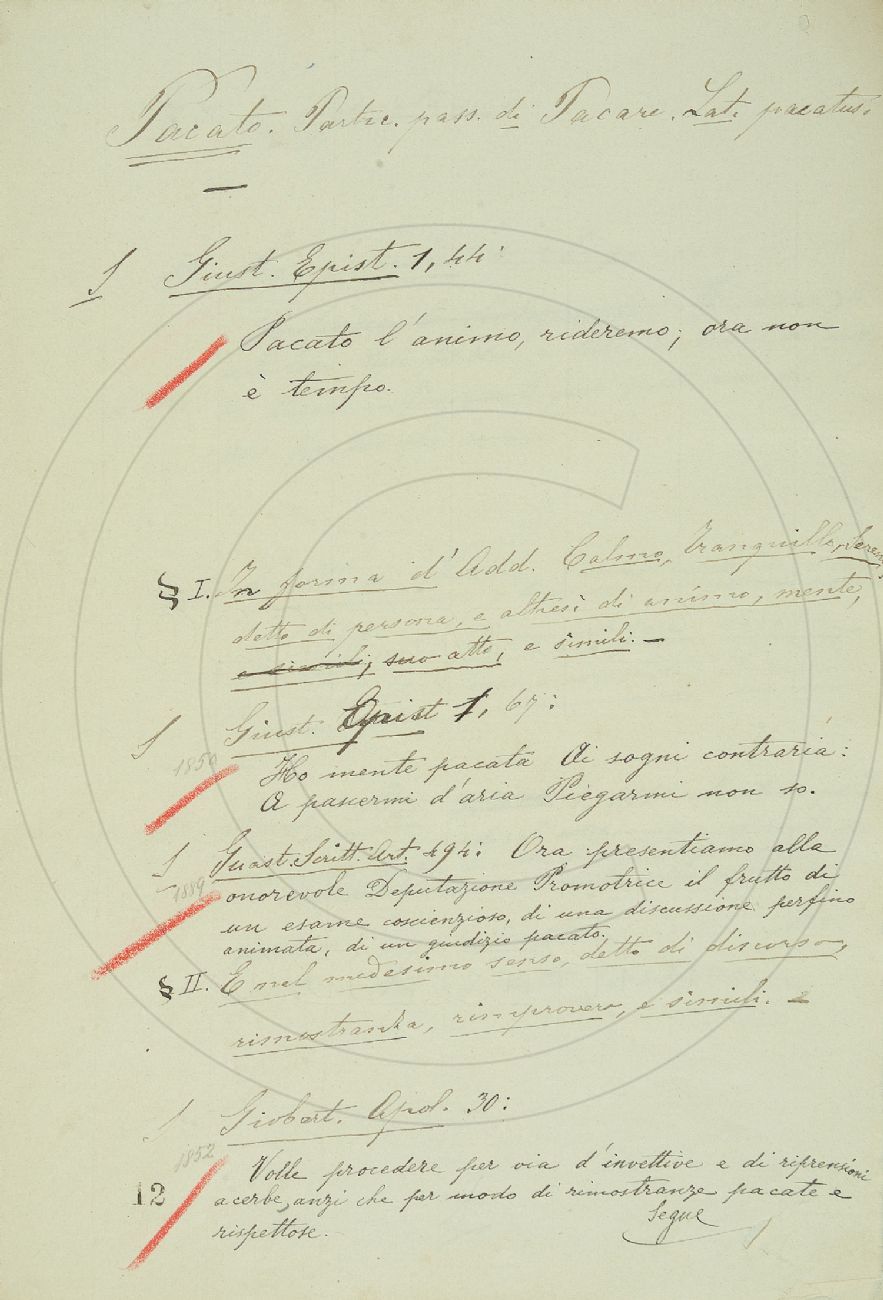 Pacato. Partic. pass. di Pacare. Lat. pacatus.
S Giust. Epist. 1, 44:
Pacato l'animo, rideremo; ora non
è tempo.
§ I. In forma d'Add. Calmo, Tranquillo, Sereno,
detto di persona, e altresì di animo, mente,
e simili; suo atto, e simili. —
S Giust. Epist 1, 67:
1850
Ho mente pacata Ai sogni contraria:
A pascermi d'aria Piegarmi non so.
S Guast. Scritt. Art. 494: Ora presentiamo alla
1889
onorevole Deputazione Promotrice il frutto di
un esame coscienzioso, di una discussione perfino
animata, di un giudizio pacato.
§ II. E nel medesimo senso, detto di discorso,
rimostranza, rimprovero, e simili. —
S Giobert. Apol. 30:
1852
Volle procedere per via d'invettive e di riprensioni
12
acerbe, anzi che per modo di rimostranze pacate e
rispettose.
Segue